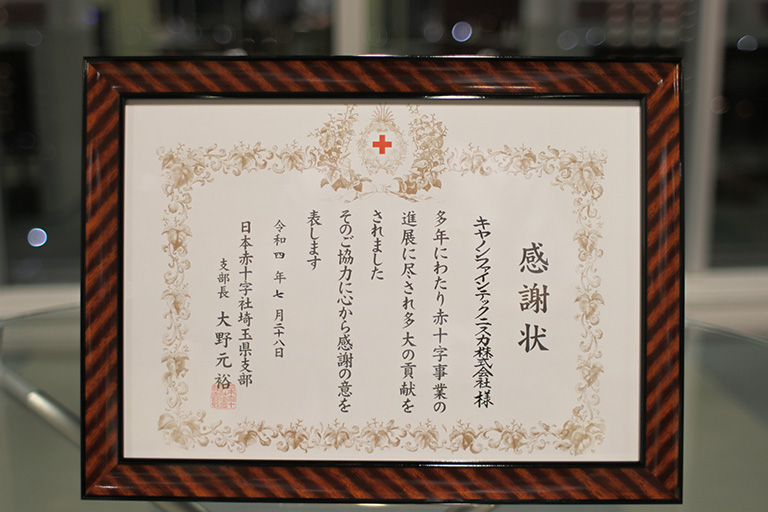 感謝状
キヤノンファインテックニスカ株式会社 様
多年にわたり赤十字事業の
進展に尽され多大の貢献を
されました
そのご協力に心から感謝の意を
表します
令和四年七月二十八日
日本赤十字社埼玉県支部
支部長 大野元裕